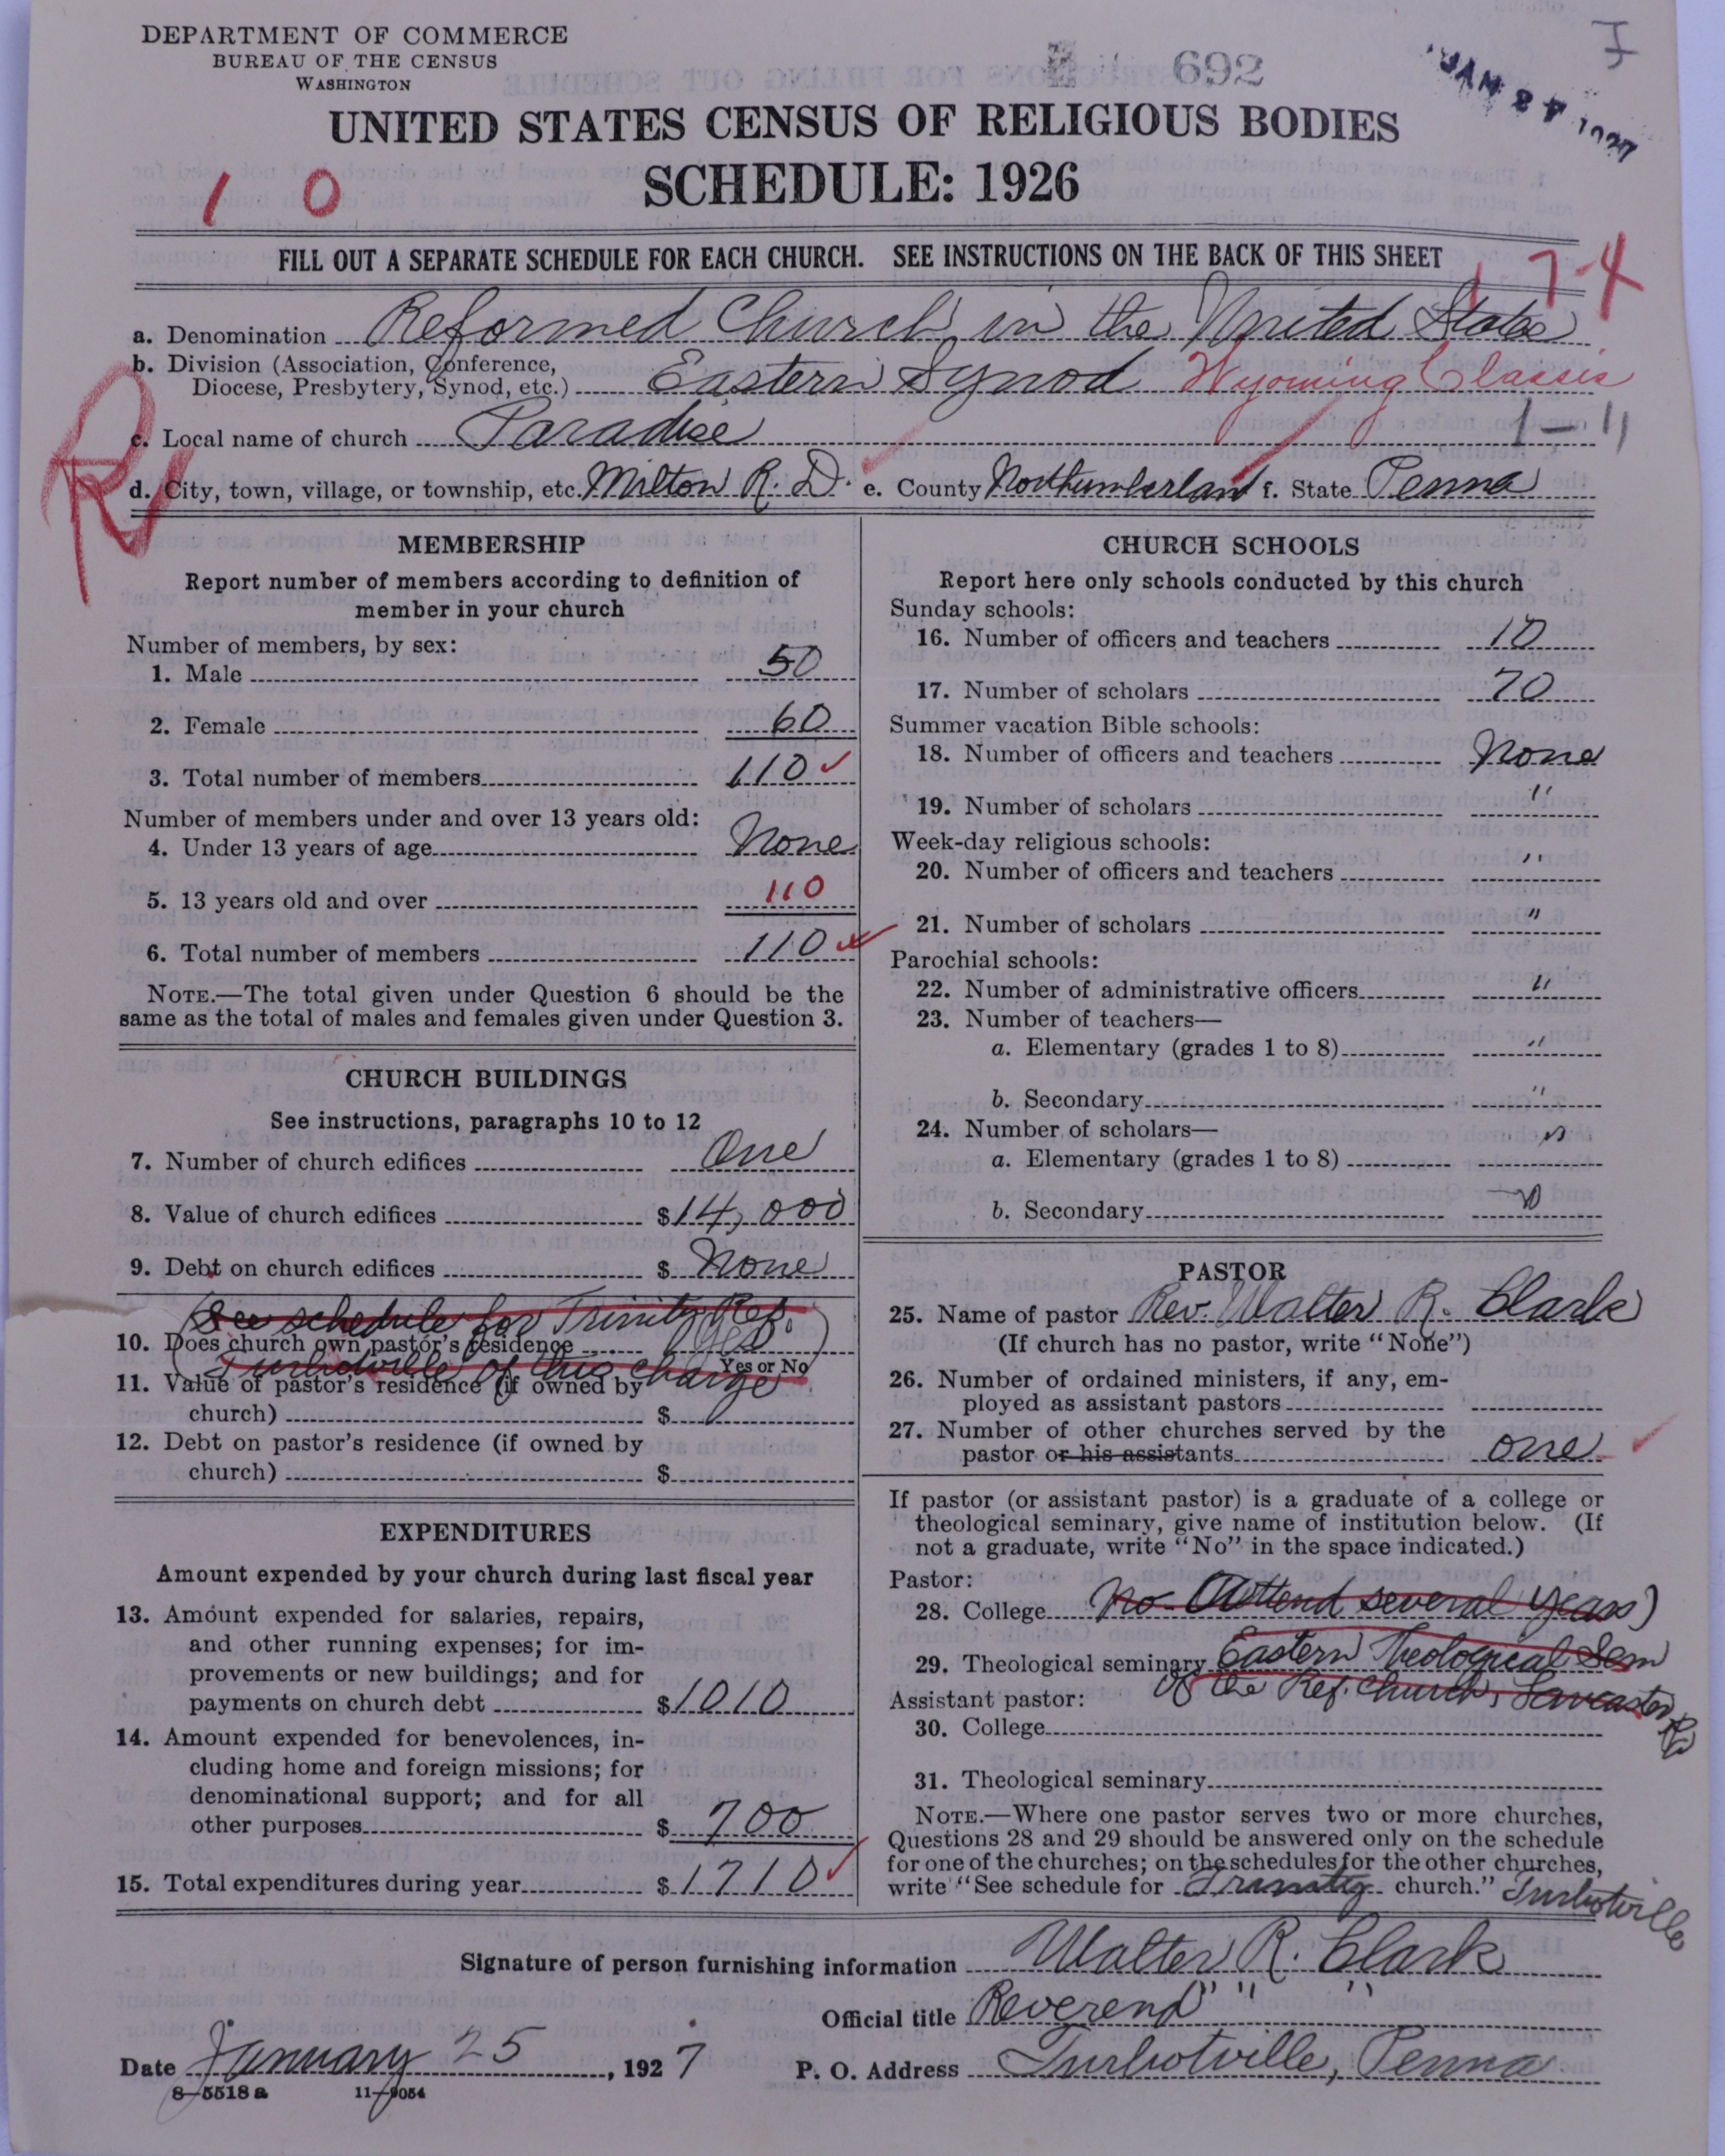 DEPARTMENT OF COMMERCE
BUREAU OF THE CENSUS
WASHINGTON
692
JAN 27 1927
UNITED STATES CENSUS OF RELIGIOUS BODIES
SCHEDULE: 1926
1 0
FILL OUT A SEPARATE SCHEDULE FOR EACH CHURCH. SEE INSTRUCTIONS ON THE BACK OF THIS SHEET
17-4
a. Denomination Reformed Church in the United States
b. Division (Association, Conference,
Diocese, Presbytery, Synod, etc.) Eastern Synod Wyoming Classis
c. Local name of church Paradise
1-11
R
d. City, town, village, or township, etc. Milton R. D. e. County Northumberland f. State Penna
MEMBERSHIP
Report number of members according to definition of
member in your church
Number of members, by sex:
1. Male 50
2. Female 60
3. Total number of members 110
Number of members under and over 13 years old:
4. Under 13 years of age None
5. 13 years old and over 110
6. Total number of members 110
NOTE.—The total given under Question 6 should be the
same as the total of males and females given under Question 3.
CHURCH BUILDINGS
See instructions, paragraphs 10 to 12
7. Number of church edifices One
8. Value of church edifices $14,000
9. Debt on church edifices $ None
(See schedule for Trinity Ref.
10. Does church own pastor's residence Yes
Yes or No
Turbotville of this charge)
11. Value of pastor's residence (if owned by
church) $
12. Debt on pastor's residence (if owned by
church) $
EXPENDITURES
Amount expended by your church during last fiscal year
13. Amount expended for salaries, repairs,
and other running expenses; for im-
provements or new buildings; and for
payments on church debt $1010
14. Amount expended for benevolences, in-
cluding home and foreign missions; for
denominational support; and for all
other purposes $ 700
15. Total expenditures during year $1710
CHURCH SCHOOLS
Report here only schools conducted by this church
Sunday schools:
16. Number of officers and teachers 10
17. Number of scholars 70
Summer vacation Bible schools:
18. Number of officers and teachers None
19. Number of scholars "
Week-day religious schools:
20. Number of officers and teachers "
21. Number of scholars "
Parochial schools:
22. Number of administrative officers "
23. Number of teachers—
a. Elementary (grades 1 to 8) "
b. Secondary "
24. Number of scholars—
a. Elementary (grades 1 to 8) "
b. Secondary
PASTOR
25. Name of pastor Rev. Walter R. Clark
(If church has no pastor, write "None")
26. Number of ordained ministers, if any, em-
ployed as assistant pastors
27. Number of other churches served by the
pastor or his assistants one
If pastor (or assistant pastor) is a graduate of a college or
theological seminary, give name of institution below. (If
not a graduate, write "No" in the space indicated.)
Pastor:
28. College No Attend several years)
29. Theological seminary Eastern Theological Sem
of the Ref. Church, Lancaster Pa
Assistant pastor:
30. College
31. Theological seminary
NOTE.—Where one pastor serves two or more churches,
Questions 28 and 29 should be answered only on the schedule
for one of the churches; on the schedules for the other churches,
write "See schedule for Trinity church." Turbotville
Signature of person furnishing information Walter R. Clark
Official title Reverend " " "
Date January 25, 1927 P. O. Address Turbotville, Penna
8-5518a 11-9054